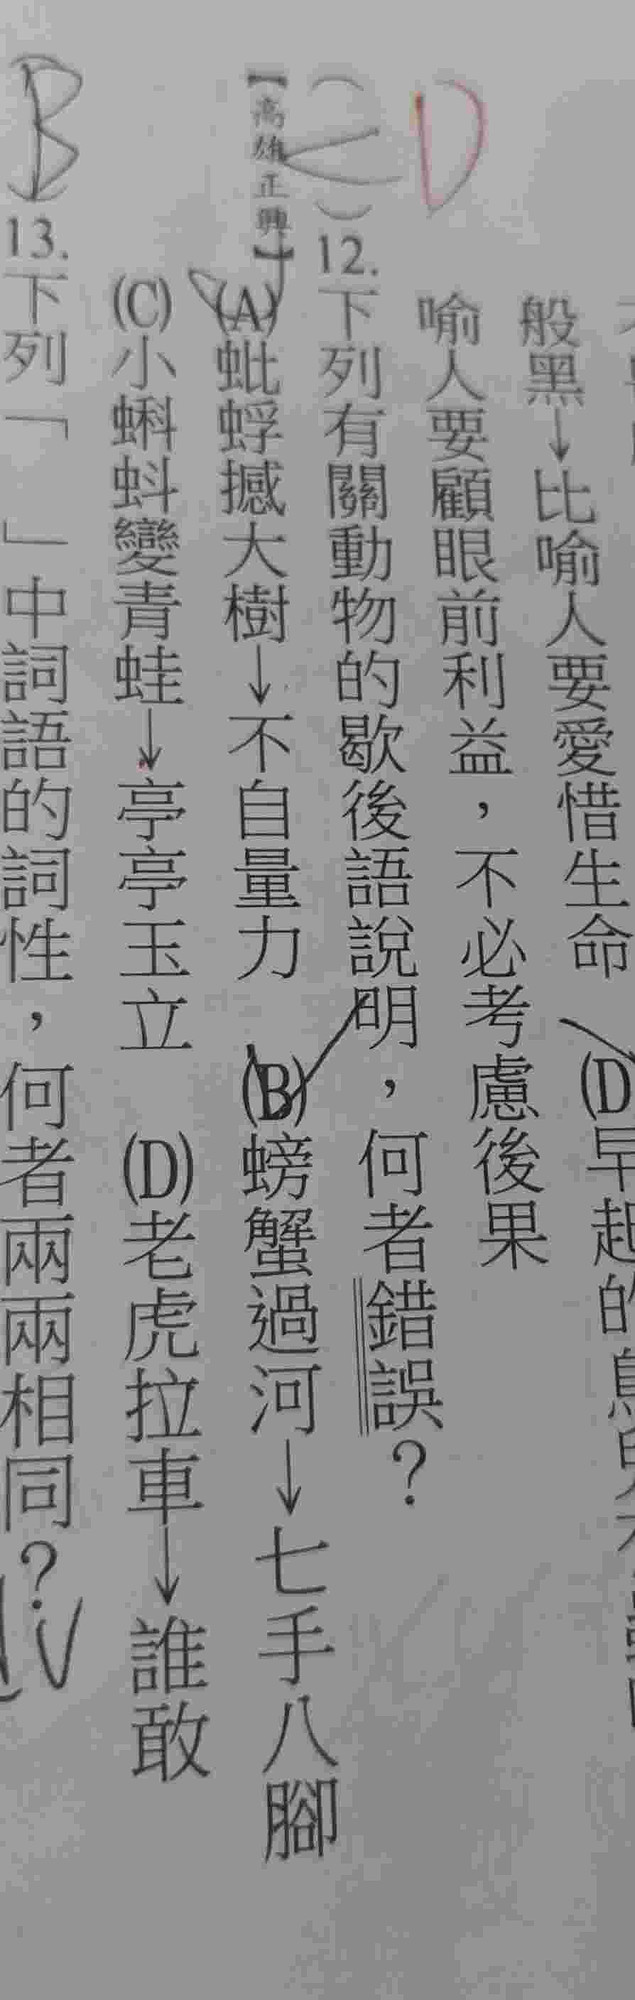 般黑→比喻人要愛惜生命 (D)早起的
喻人要顧眼前利益，不必考慮後果
D
12.下列有關動物的歇後語說明，何者錯誤？
【高雄正興】
(A)蚍蜉撼大樹→不自量力 (B)螃蟹過河→七手八腳
(C)小蝌蚪變青蛙→亭亭玉立 (D)老虎拉車→誰敢
B
13.下列「 」中詞語的詞性，何者兩兩相同？